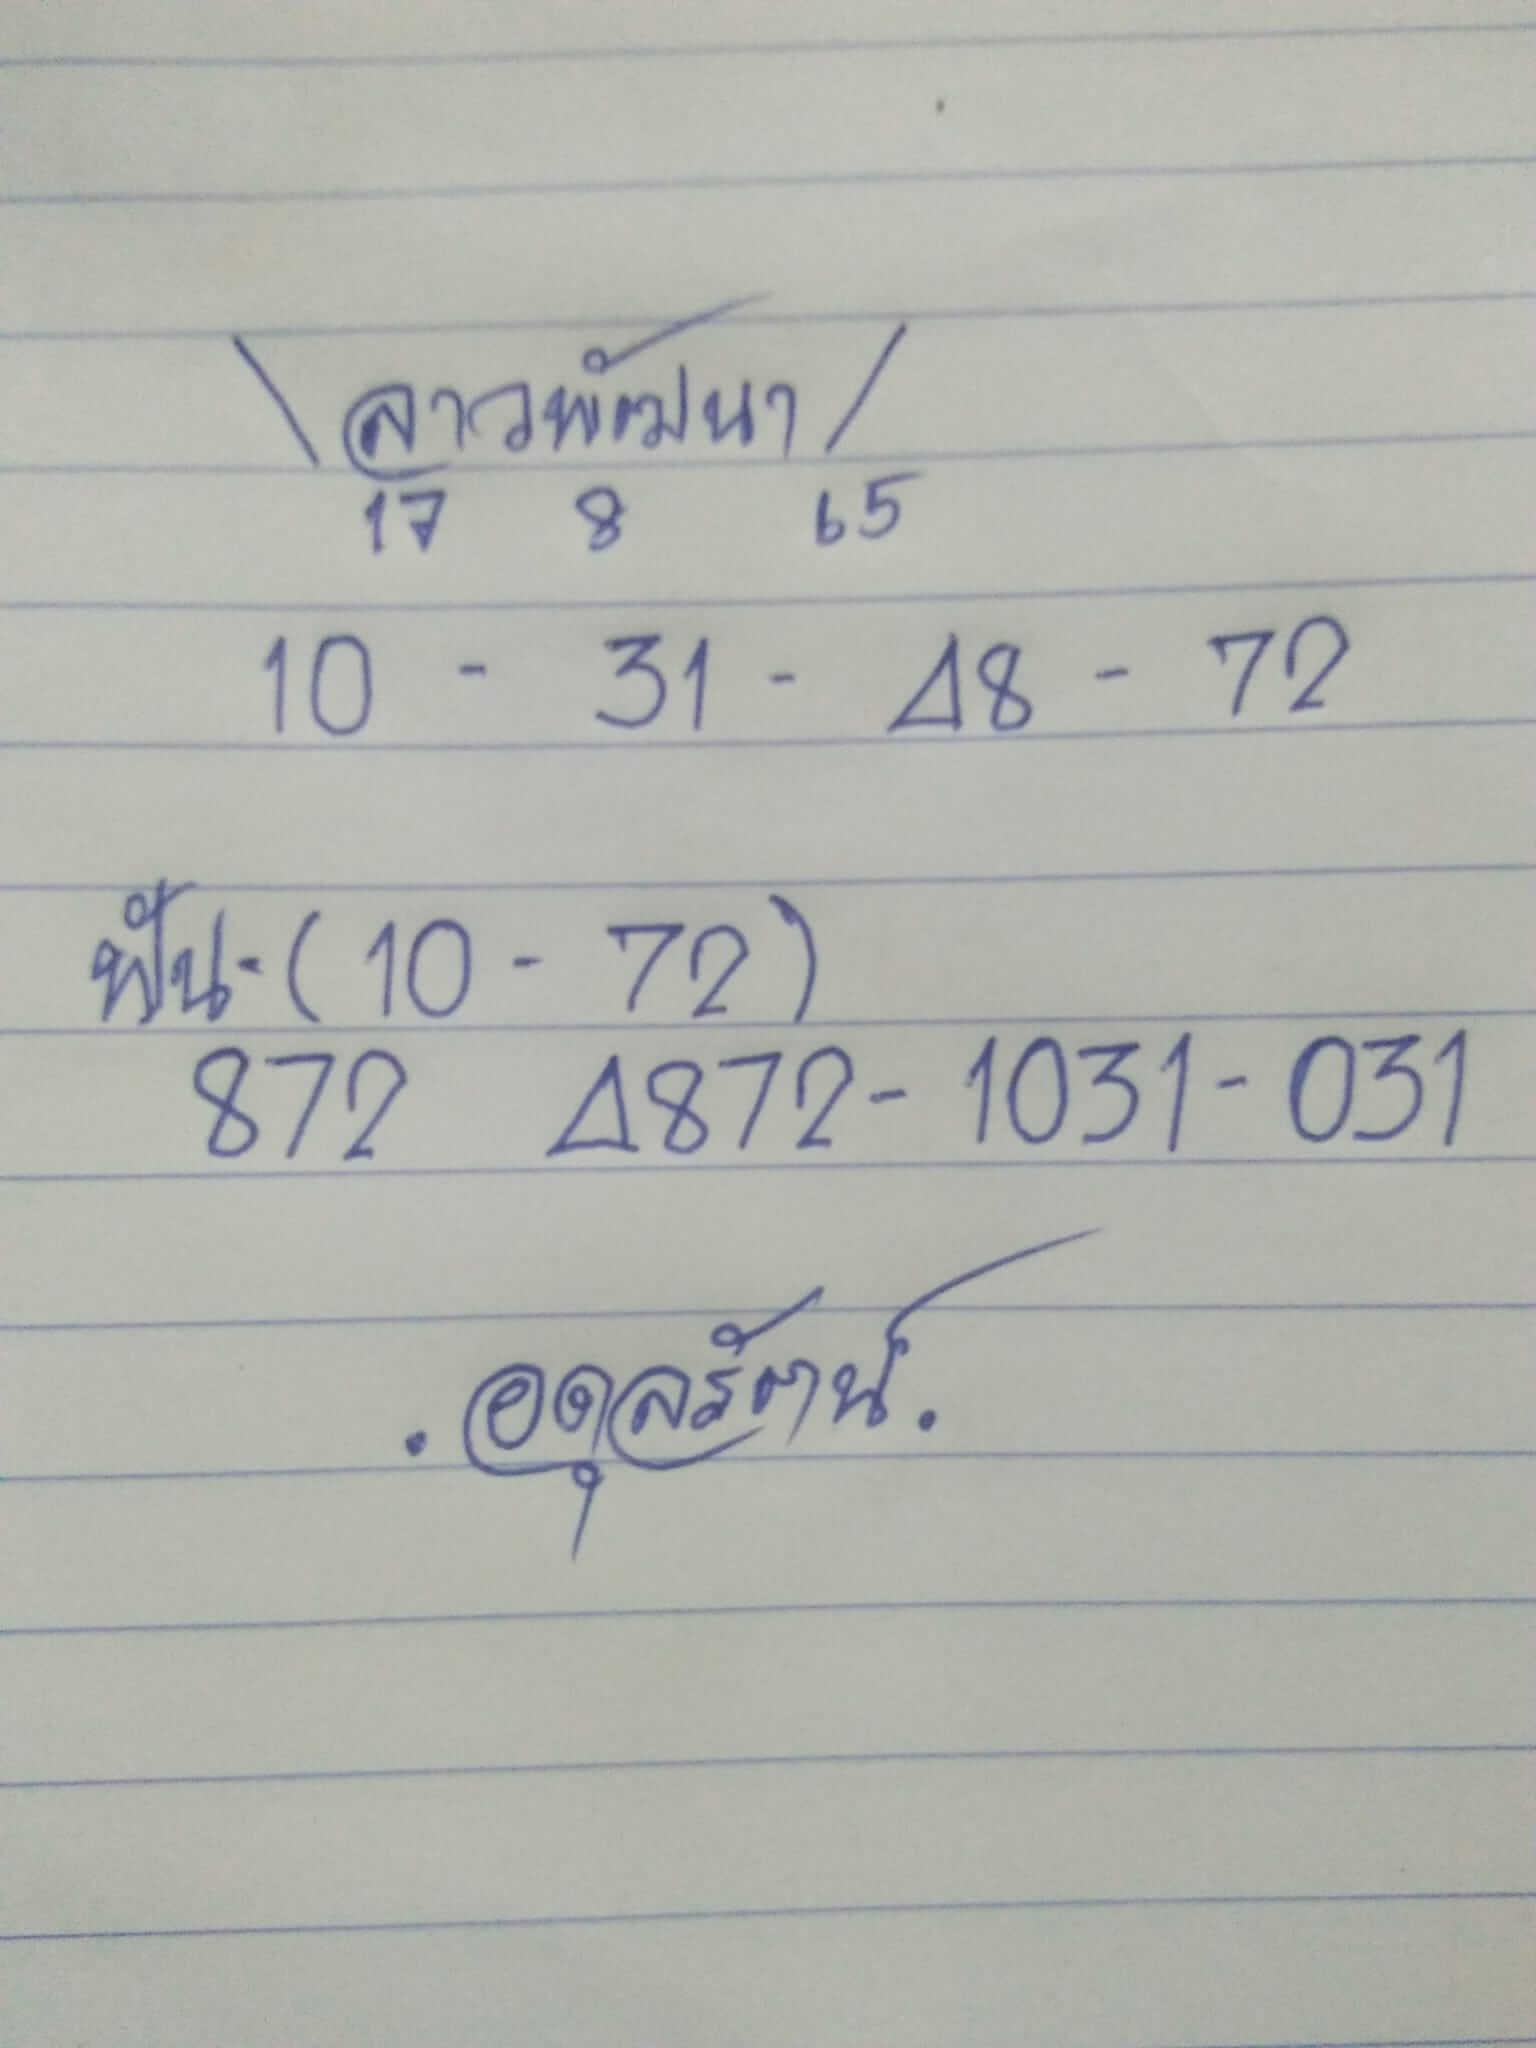 \ลาวพัฒนา/
17 8 65
10 - 31 - 48 - 72
ฟัน-(10 - 72)
872 4872 - 1031 - 031
. อดุลรัตน์.